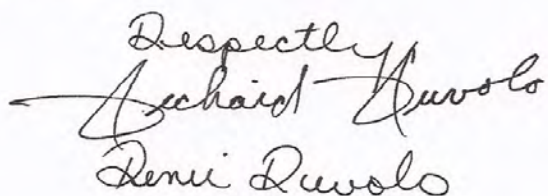 Respectly
Richard Ruvolo
Renee Ruvolo